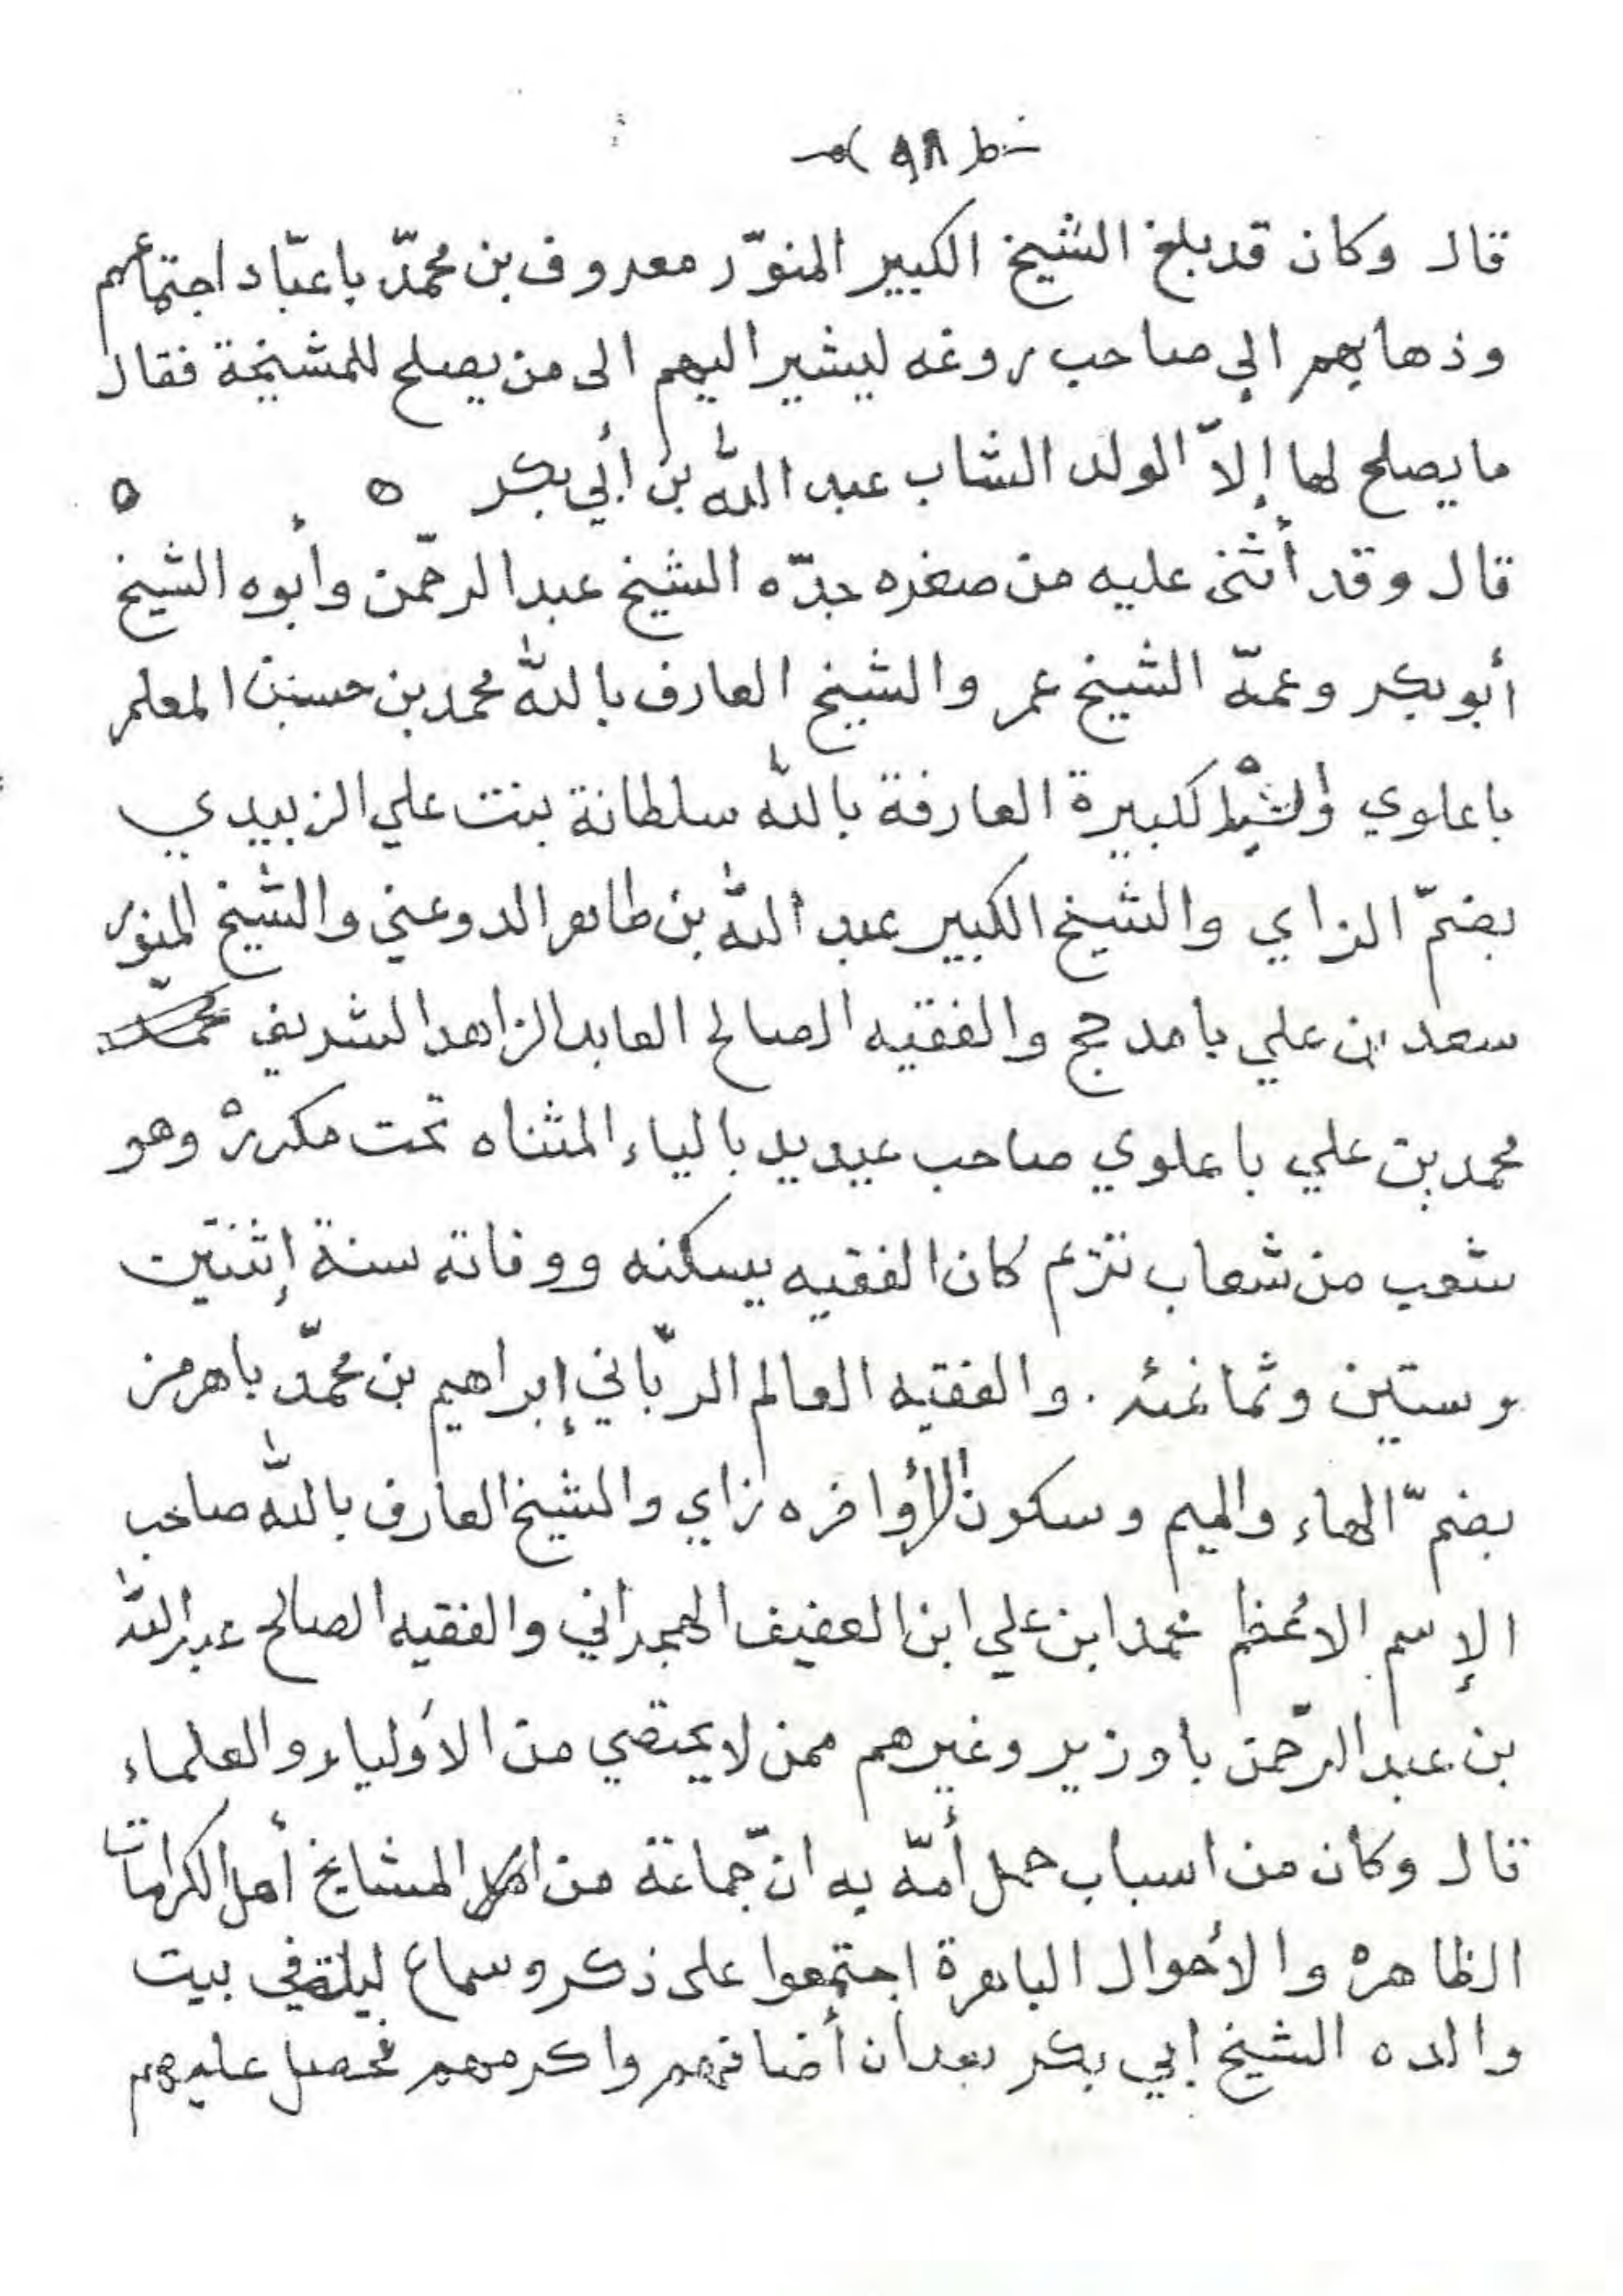 ٩٨
قال وكان قد بلغ الشيخ الكبير المنوّر معروف بن محمّد باعبّاد اجتماعهم
وذهابهم الي صاحب روغه ليشير اليهم الى من يصلح للمشيخة فقال
ما يصلح لها إلاّ الولد الشاب عبد الله بن أبي بكر ه ه
قال وقد أثنى عليه من صغره جدّه الشيخ عبد الرحّمن وأبوه الشيخ
أبو بكر وعمّه الشيخ عمر والشيخ العارف بالله محمد بن حسن المعلم
باعلوي الكبيرة العارفة بالله سلطانة بنت علي الزبيدي
بضمّ الزاي والشيخ الكبير عبد الله بن طاهر الدوعني والشيخ المنوّر
سعد بن علي بامدحج والفقيه الصالح العابد الزاهد الشريف
محمد بن علي باعلوي صاحب عيديد بالياء المثناه تحت مكررهْ وهو
شعب من شعاب تريم كان الفقيه يسكنه ووفاته سنة إثنتين
وستين وثمانمئه . والفقيه العالم الربّاني إبراهيم بن محمّد باهرمز
بضمّ الهاء والميم وسكون الراء وأخره زاي والشيخ العارف بالله صاحب
الإسم الأعظم محمد ابن علي ابن العفيف الهجراني والفقيه الصالح عبد الله
بن عبد الرّحمن باوزير وغيرهم ممن لا يحتصي من الأولياء والعلماء
قال وكان من اسباب حمل أمّه به انّ جماعة من المشايخ أهل الكرامات
الظاهرهْ والأحوال الباهرة اجتمعوا على ذكر وسماع ليلة في بيت
والده الشيخ ابي بكر بعد ان أضافهم واكرمهم فحصل عليهم